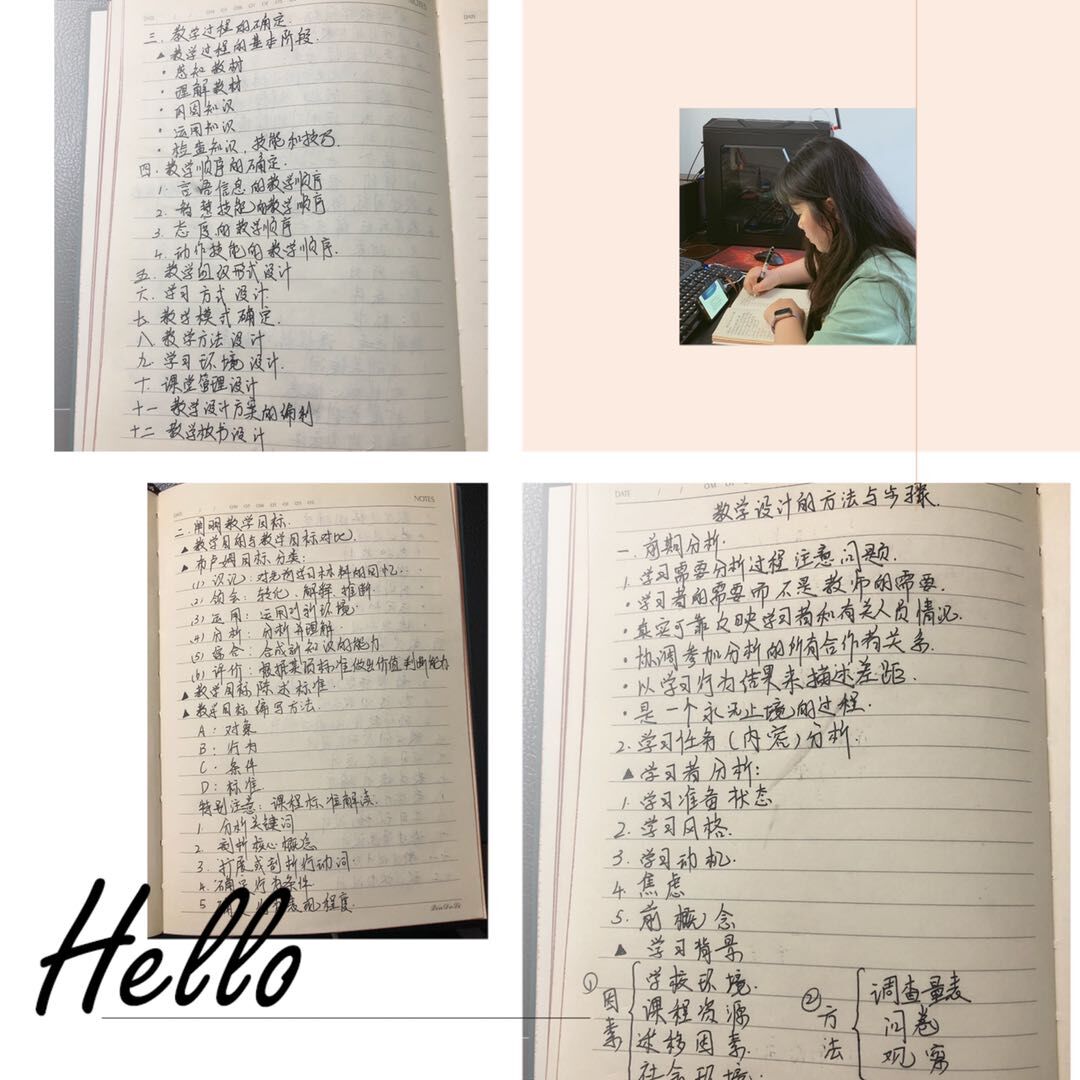 NOTES
三. 教学过程的确定.
▲教学过程的基本阶段.
· 感知教材
· 理解教材
· 巩固知识
· 运用知识
· 检查知识, 技能和技巧.
四. 教学顺序的确定.
1. 言语信息的教学顺序
2. 智慧技能的教学顺序
3. 态度的教学顺序
4. 动作技能的教学顺序.
五. 教学组织形式设计
六. 学习方式设计.
七. 教学模式确定.
八. 教学方法设计
九. 学习环境设计.
十. 课堂管理设计
十一 教学设计方案的编制
十二 教学板书设计
NOTES
二. 阐明教学目标.
▲教学目的与教学目标对比.
▲布卢姆目标分类:
(1) 识记: 对先前学习材料的回忆.
(2) 领会: 转化、解释、推断.
(3) 运用: 运用于新环境.
(4) 分析: 分析并理解.
(5) 综合: 合成新知识的能力
(6) 评价: 根据某项标准做出价值判断能力
▲教学目标陈述标准.
▲教学目标编写方法.
A: 对象
B: 行为
C: 条件
D: 标准
特别注意: 课程标准解读.
1. 分析关键词
2. 剖析核心概念
3. 扩展或剖析行动词.
4. 确定行为条件.
5 表现程度.
DATE
教学设计的方法与步骤.
一. 前期分析.
1. 学习需要分析过程注意问题.
· 学习者的需要而不是教师的需要.
· 真实可靠反映学习者和有关人员情况.
· 协调参加分析的所有合作者关系.
· 以学习行为结果来描述差距.
· 是一个永无止境的过程.
2. 学习任务(内容)分析.
▲学习者分析:
1. 学习准备状态
2. 学习风格.
3. 学习动机.
4. 焦虑
5. 前概念
▲ 学习背景
① 因素
学校环境.
课程资源
迷移因素.
社会环境.
② 方法
调查量表
问卷
观察
Hello